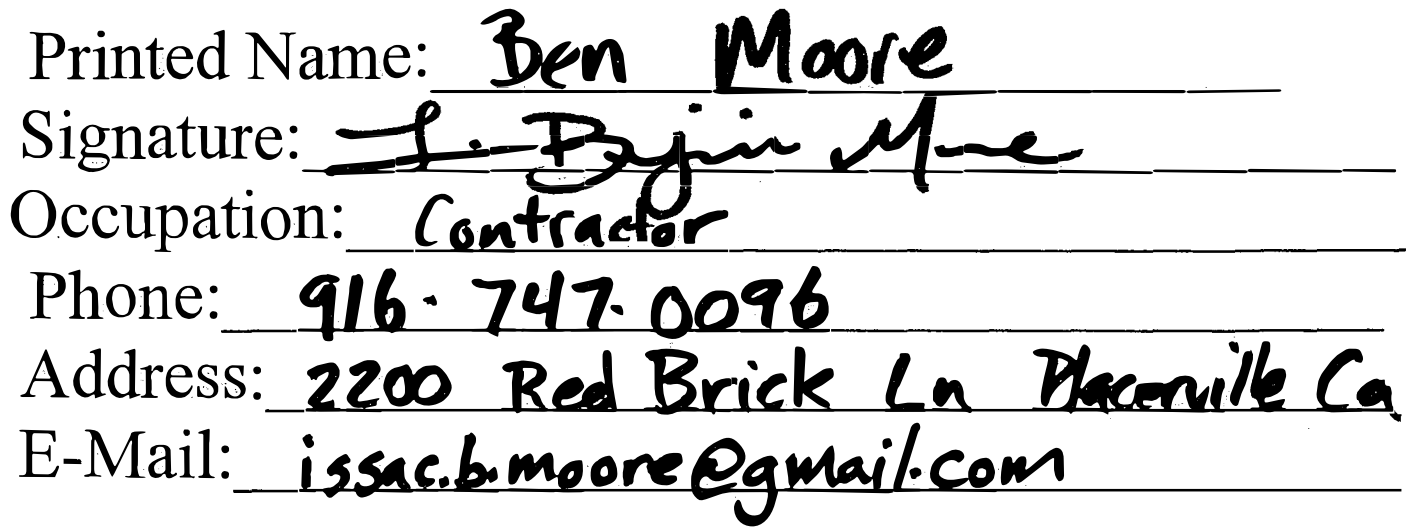 Printed Name: Ben Moore
Signature: I. Benjamin Moore
Occupation: Contractor
Phone: 916. 747. 0096
Address: 2200 Red Brick Ln Placerville Ca,
E-Mail: issac.b.moore@gmail.com